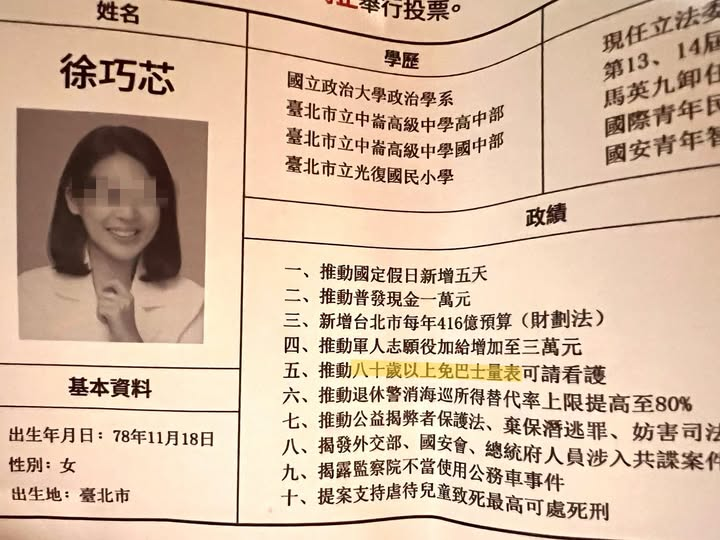 舉行投票。
姓名
徐巧芯
學歷
國立政治大學政治學系
臺北市立中崙高級中學高中部
臺北市立中崙高級中學國中部
臺北市立光復國民小學
現任立法委
第13、14屆
馬英九卸任
國際青年民
國安青年智
政績
一、推動國定假日新增五天
二、推動普發現金一萬元
三、新增台北市每年416億預算（財劃法）
四、推動軍人志願役加給增加至三萬元
五、推動八十歲以上免巴士量表可請看護
六、推動退休警消海巡所得替代率上限提高至80%
七、推動公益揭弊者保護法、棄保潛逃罪、妨害司法
八、揭發外交部、國安會、總統府人員涉入共諜案件
九、揭露監察院不當使用公務車事件
十、提案支持虐待兒童致死最高可處死刑
基本資料
出生年月日：78年11月18日
性別：女
出生地：臺北市